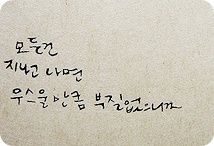 모든건
지나고 나면
우스울만큼 부질없으니까